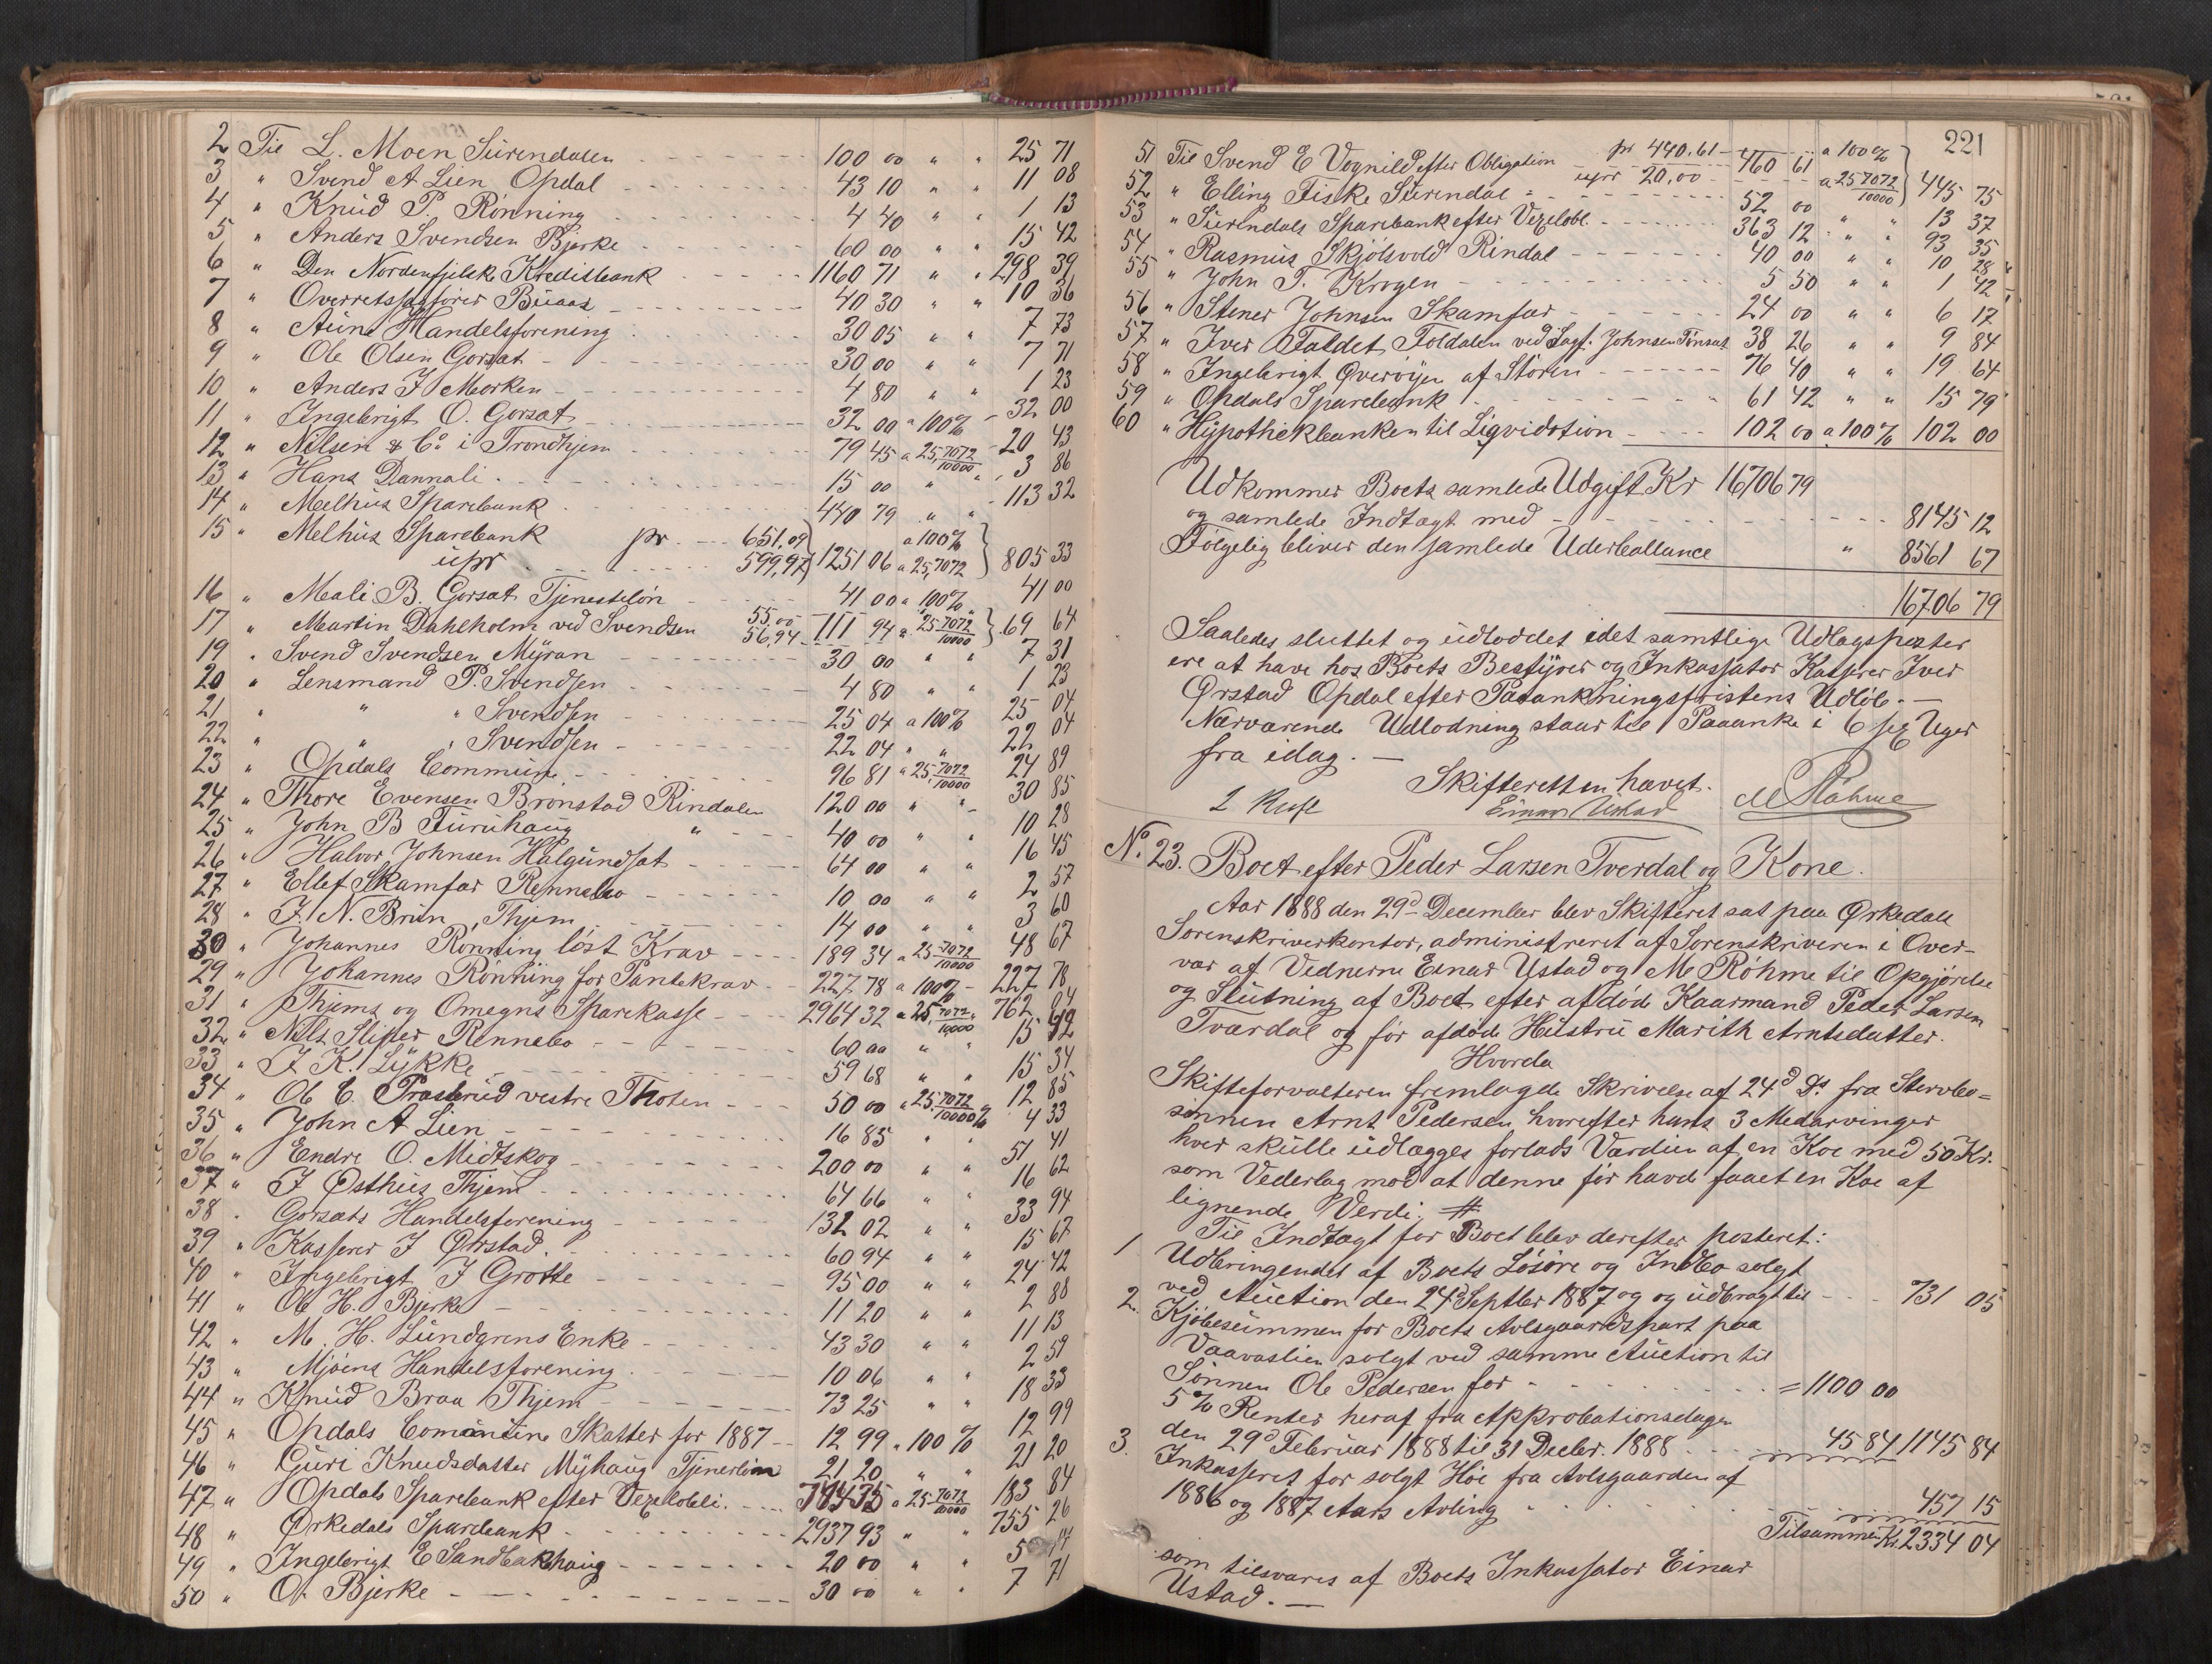 2 Til L. Moen Surendalen 100 00 " " 25 71
3 " Svend A Lien Opdal 43 10 " " 11 08
4 " Knud P. Rönning 4 40 " " 1 13
5 " Anders Svendsen Bjerke 60 00 " " 15 42
6 " Den Nordenfjelske Kreditbank 1160 71 " " 298 39
7 " Overretssagförer Buaas 40 30 " " 10 36
8 " Aune Handelsforening 30 05 " " 7 73
9 " Ole Olsen Gorsat 30 00 " " 7 71
10 " Anders J Morken 4 80 " " 1 23
11 " Ingebrigt O. Gorsat 32 00 " 100% 32 00
12 " Nilsen & Co. i Trondhjem 79 45 a 25,7072/10000 20 43
13 " Hans Dannali 15 00 " " 3 86
14 " Melhus Sparebank 440 79 " " 113 32
15 " Melhus Sparebank pr 651,09 a 100%
upr 599,97 1251 06 a 25,7072 805 33
16 " Mali B. Gorsat Tjenesteløn 41 00 a 100% 41 00
17 " Martin Dahlholm ved Svendsen 55,00 56,94 111 94 a 25 7072/10000 69 64
19 " Svend Svendsen Myran 30 00 " " 7 31
20 " Lensmand P. Svendsen 4 80 " " 1 23
21 " " " Svendsen 25 04 a 100% 25 04
22 " " " Svendsen 22 04 " " 22 04
23 " Opdals Commune 96 81 a 25,7072/10000 24 89
24 " Thore Evensen Brønstad Rindalen 120 00 " " 30 85
25 " John B Furuhaug " 40 00 " " 10 28
26 " Halvor Johnsen Halgundsat 64 00 " " 16 45
27 " Ellef Skamfar Rennebo 10 00 " " 2 57
28 " J. N. Brun, Thjem 14 00 " " 3 60
30 " Johannes Rönning löst Krav 189 34 a 25 7072/10000 48 67
29 " Johannes Rönning for Pantekrav 227 78 a 100% 227 78
31 " Thjems og Omegns Sparekasse 2964 32 a 25,7072/10000 762 04
32 " Nils Sliper Rennebo 60 00 " " 15 42
33 " J. K. Lykke 59 68 " " 15 34
34 " Ole C. Prastrud vestre Thoten 50 00 a 25 7072/10000% 12 85
35 " John A Lien 16 85 " " 4 33
36 " Endre O. Midtskog 200 00 " " 51 41
37 " J Østhus Thjem 64 66 " " 16 62
38 " Gorsets Handelsforening 132 02 " " 33 94
39 " Kasserer J Ørstad 60 94 " " 15 67
40 " Ingebrigt J Grøtte 95 00 " " 24 42
41 " Ole H. Bjerke 11 20 " " 2 88
42 " M. H. Lundgrens Enke 43 30 " " 11 13
43 " Mjöens Handelsforening 10 06 " " 2 59
44 " Knud Braa Thjem 73 25 " " 18 33
45 " Opdals Comunine Skatter for 1887 12 99 " 100% 12 99
46 " Guri Knudsdatter Myhaug Tjenerlön 21 20 " " 21 20
47 " Opdals Sparebank efter Vexelobli. a 25 7072/10000 183 84
48 " Ørkedals Sparebank 2937 93 " " 755 26
49 " Ingebrigt E Sandbakhaug 20 00 " " 5 14
50 " O. Bjerke 30 00 " " 7 71
221
51 Til Svend E Vognild efter Obligation pr 440.61 upr 20,00 460 61 a 100% a 25 7072/10000 445 75
52 " Elling Fiske Surendal 52 00 " " 13 37
53 " Surendals Sparebank efter Vexelobl. 363 12 " " 93 35
54 " Rasmus Skjölsvold Rindal 40 00 " " 10 28
55 " John T. Krogen 5 50 " " 1 42
56 " Stener Johnsen Skamfar 24 00 " " 6 17
57 " Iver Faldet Foldalen ved Sagf. Johnsen Tönset 38 26 " " 9 84
58 " Ingebrigt Øverøyen af Stören 76 40 " " 19 64
59 " Opdals Sparebank 61 42 " " 15 79
60 " Hypothekbanken til Liqvidation 102 00 a 100% 102 00
Udkommer Boets samlede Udgift Kr 16706 79
og samlede Indtægt med 8145 12
Følgelig bliver den samlede Underballance " 8561 67
16706 79
Saaledes sluttet og udloddet idet samtlige Udlagsposter
ere at have hos Boets Bestyrer og Inkassator Kasserer Iver
Ørstad Opdal efter Paaankningsfristens Udløb. —
Nærværende Udlodning staar til Paaanke i 6 sex Uger
fra idag. —
Skifteretten hævet.
Einar Ustad M Röhme
No. 23. Boet efter Peder Larsen Tverdal og Kone.
Aar 1888 den 29d December blev Skifteret sat paa Ørkedals
Sorenskriverkontor, administreret af Sorenskriveren i Over-
vær af Vidnerne Einar Ustad og M Röhme til Opgjørelse
og Slutning af Boet efter afdöde Kaarmand Peder Larsen
Tværdal og før afdøde Hustru Marith Arntsdatter.
Hvorda
Skifteforvalteren fremlagde Skrivelse af 24d Ds. fra Stervbo=
sønnen Arnt Pedersen, hvorefter hans 3 Medarvinger
hver skulle udlægges forlods Værdien af en Koe med 50 Kr.
som Vederlag mod at denne før havde faaet en Koe af
lignende Verdi. #
Til Indtægt for Boet blev derefter posteret:
1 Udbringendet af Boets Løsøre og Indbo solgt
ved Auction den 24d Septbr 1887 og og udbragt til 731 05
2. Kjøbesummen for Boets Avlsgaardspart paa
Vaavaslien solgt ved samme Auction til
Sønnen Ole Pedersen for = 1100 00
5% Renter heraf fra Approbationsdagen
den 29d Februar 1888 til 31 Decbr. 1888 45 84 1145 84
3. Inkasseret for solgt Høe fra Avlsgaarden af
1886 og 1887 Aars Avling 457 15
Tilsammen Kr. 2334 04
som tilsvares af Boets Inkassator Einar
Ustad. —